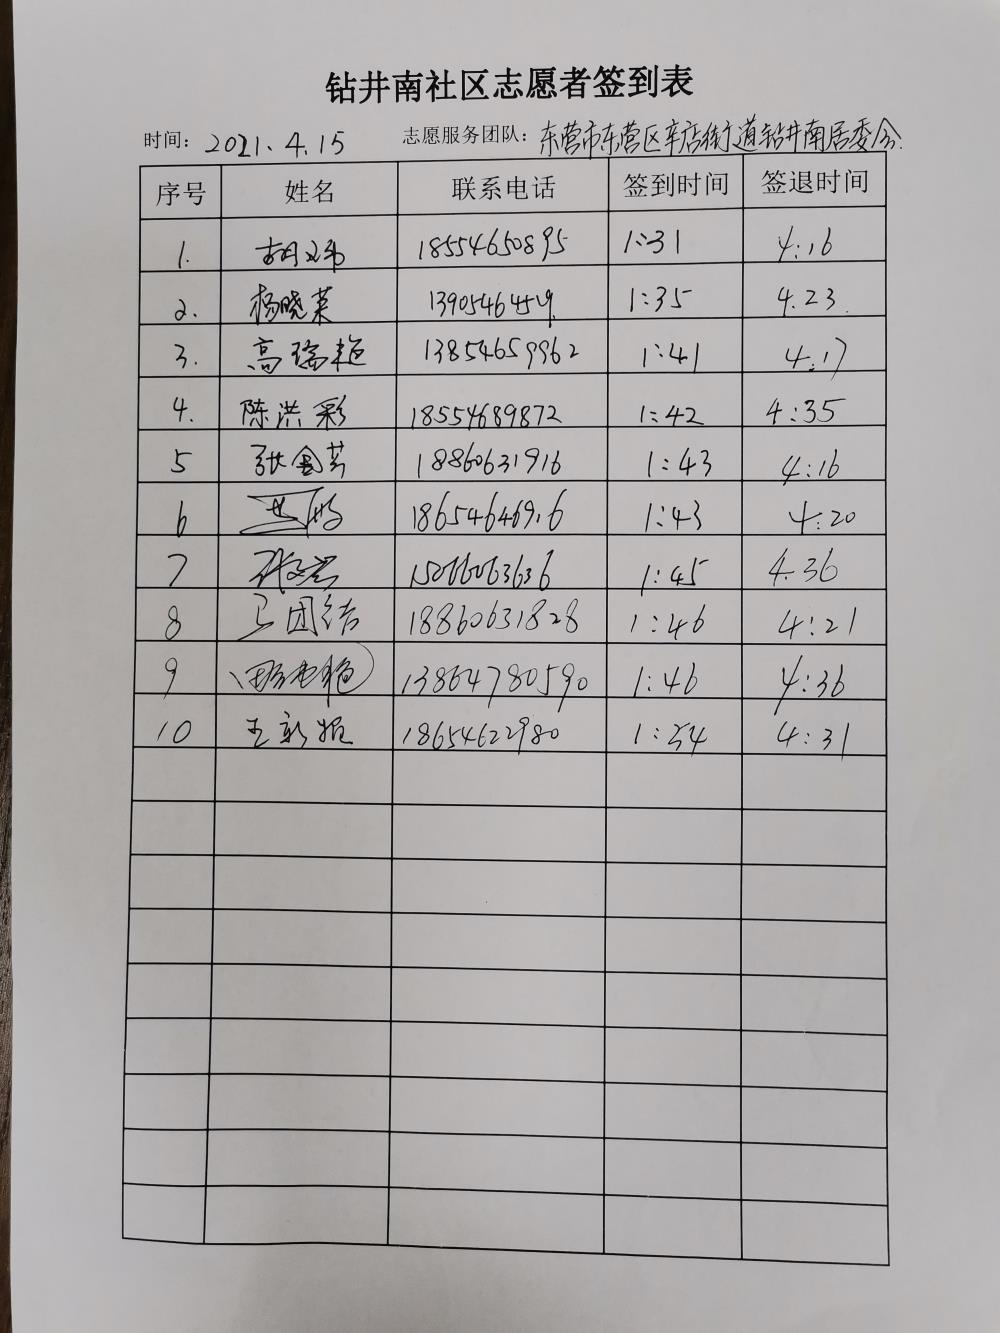 钻井南社区志愿者签到表
时间：2021.4.15 志愿服务团队：东营市东营区辛店街道钻井南居委会
序号 姓名 联系电话 签到时间 签退时间
1. 胡文 18554650895 1:31 4:16
2. 杨晓英 1:35 4.23
3. 高瑞艳 13854659962 1:41 4:17
4. 陈洪彩 18554689872 1:42 4:35
5 张金芳 18860631916 1:43 4:16
6 1:43 4:20
7 15066063636 1:45 4.36
8 团结 18860631828 1:46 4:21
9 13864780590 1:46 4:36
10 王新 18654622980 1:54 4:31